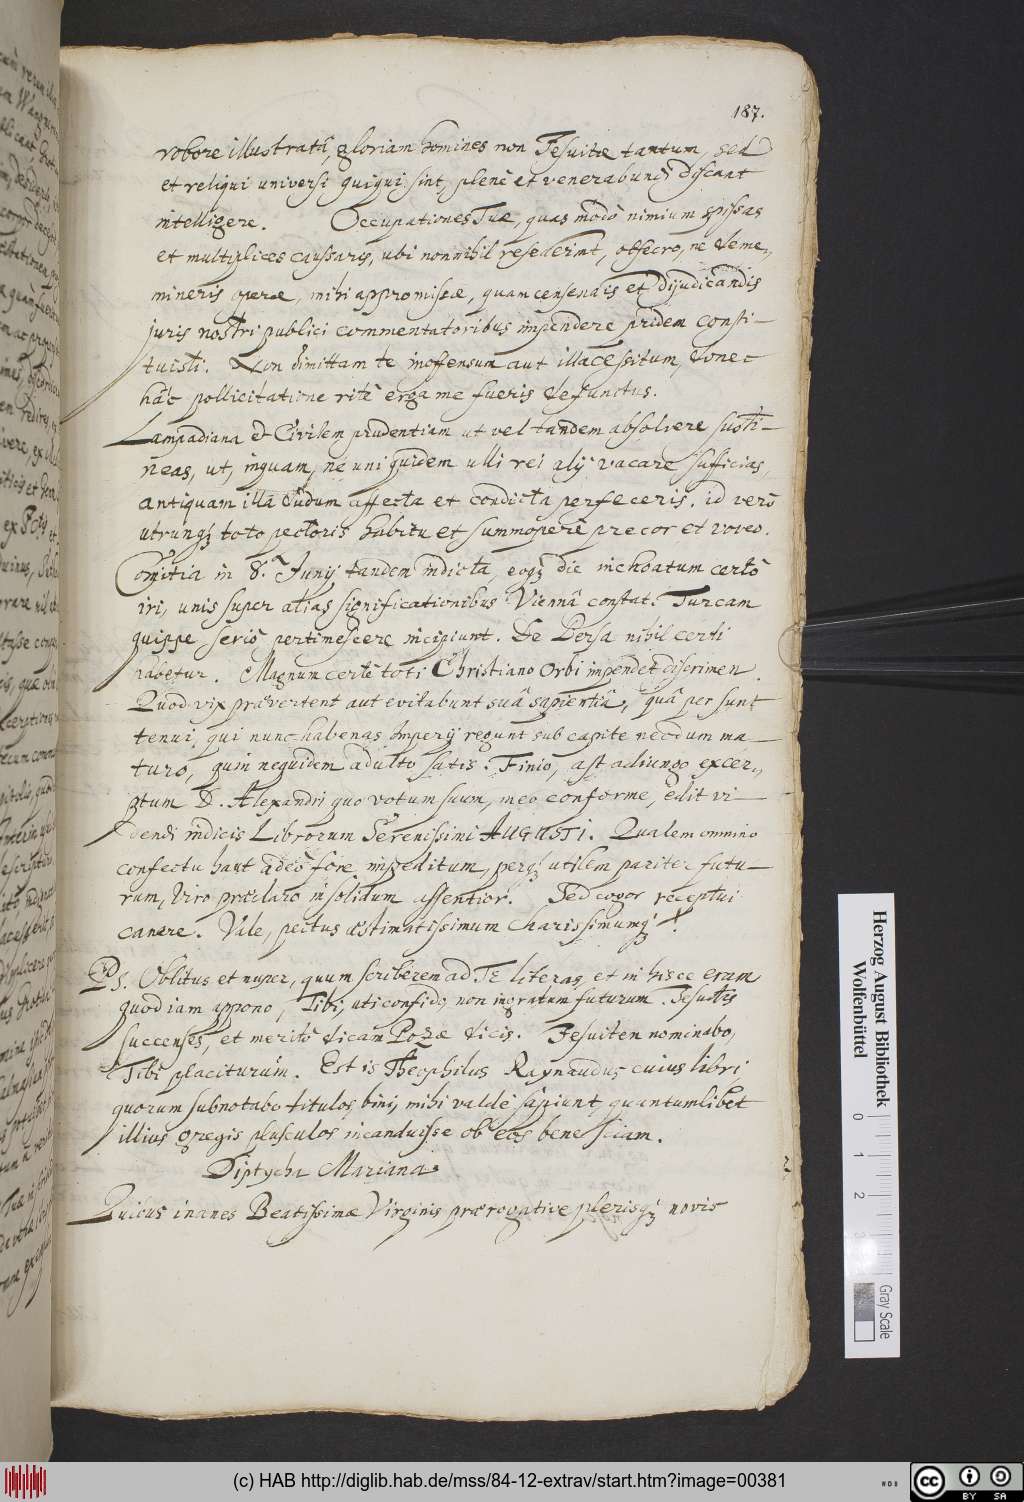 187.
robore illustratâ, gloriam homines non Jesuitæ tantum, sed
et reliqui universi quiqui sint, plenè et venerabundi discant
intelligere. Occupationes Tuæ, quas modò nimium spissas
et multiplices caussaris, ubi nonnihil resederint, obsecro, ne deme„
mineris operæ, mihi appromissæ, quam censendis et dijudicandis
juris nostri publici commentatoribus impendere pridem consti-
tuisti. Non dimittam te inoffensum aut illacessitum, donec
hâc pollicitatione ritè erga me fueris defunctus.
Lampadiana et Civilem prudentiam ut vel tandem absolvere susti-
neas, ut, inquam, ne uni quidem ulli rei alij vacare sufficias,
antiquam illa dudum affecta et condicta perfeceris, id verò
utrunq; toto pectoris habitu et summoperè precor et voveo.
Comitia in 8.ᵃ Junij tandem indicta, eoq; die inchoatum certò
iri, unis super alias significationibus Viennâ constat. Turcam
quippe seriò pertimescere incipiunt. De Persa nihil certi
habetur. Magnum certè toti Christiano Orbi impendet discrimen.
Quod vix prævertent aut evitabunt suâ sapientiâ, quâ per sunt
tenui, qui nunc habenas Imperij regunt sub capite necdum ma-
turo, quin nequidem adulto satis. Finio, ast adiungo excer„
ptum D. Alexandri quo votum suum, meo conforme, edit vi-
dendi indicis Librorum Serenissimi AUGUSTI. Qualem omnino
confectu haut adeò fore impeditum, perq; utilem pariter futu-
rum, Viro præclaro in solidum assentior. Sed cogor receptui
canere. Vale, pectus æstimatissimum charissimumq;
PS. Oblitus et nuper, quum scriberem ad Te literas, et in hisce eram
quod iam appono, Tibi, uti confido, non ingratum futurum. Jesuitis
succenses, et meritò dicam dicis. Jesuiten nominabo,
Tibi placiturum. Est is Theophilus Raynaudus cuius libri
quorum subnotabo titulos bini, mihi valdè sapiunt, quantumlibet
illius gregis plusculos incanduisse ob eos bene sciam.
Diptycha Mariana.
Quibus inanes Beatissimæ Virginis prærogativæ plerisq; novis
Herzog August Bibliothek
Wolfenbüttel
0 1 2 3
Gray Scale
(c) HAB http://diglib.hab.de/mss/84-12-extrav/start.htm?image=00381
WDB
cc BY SA